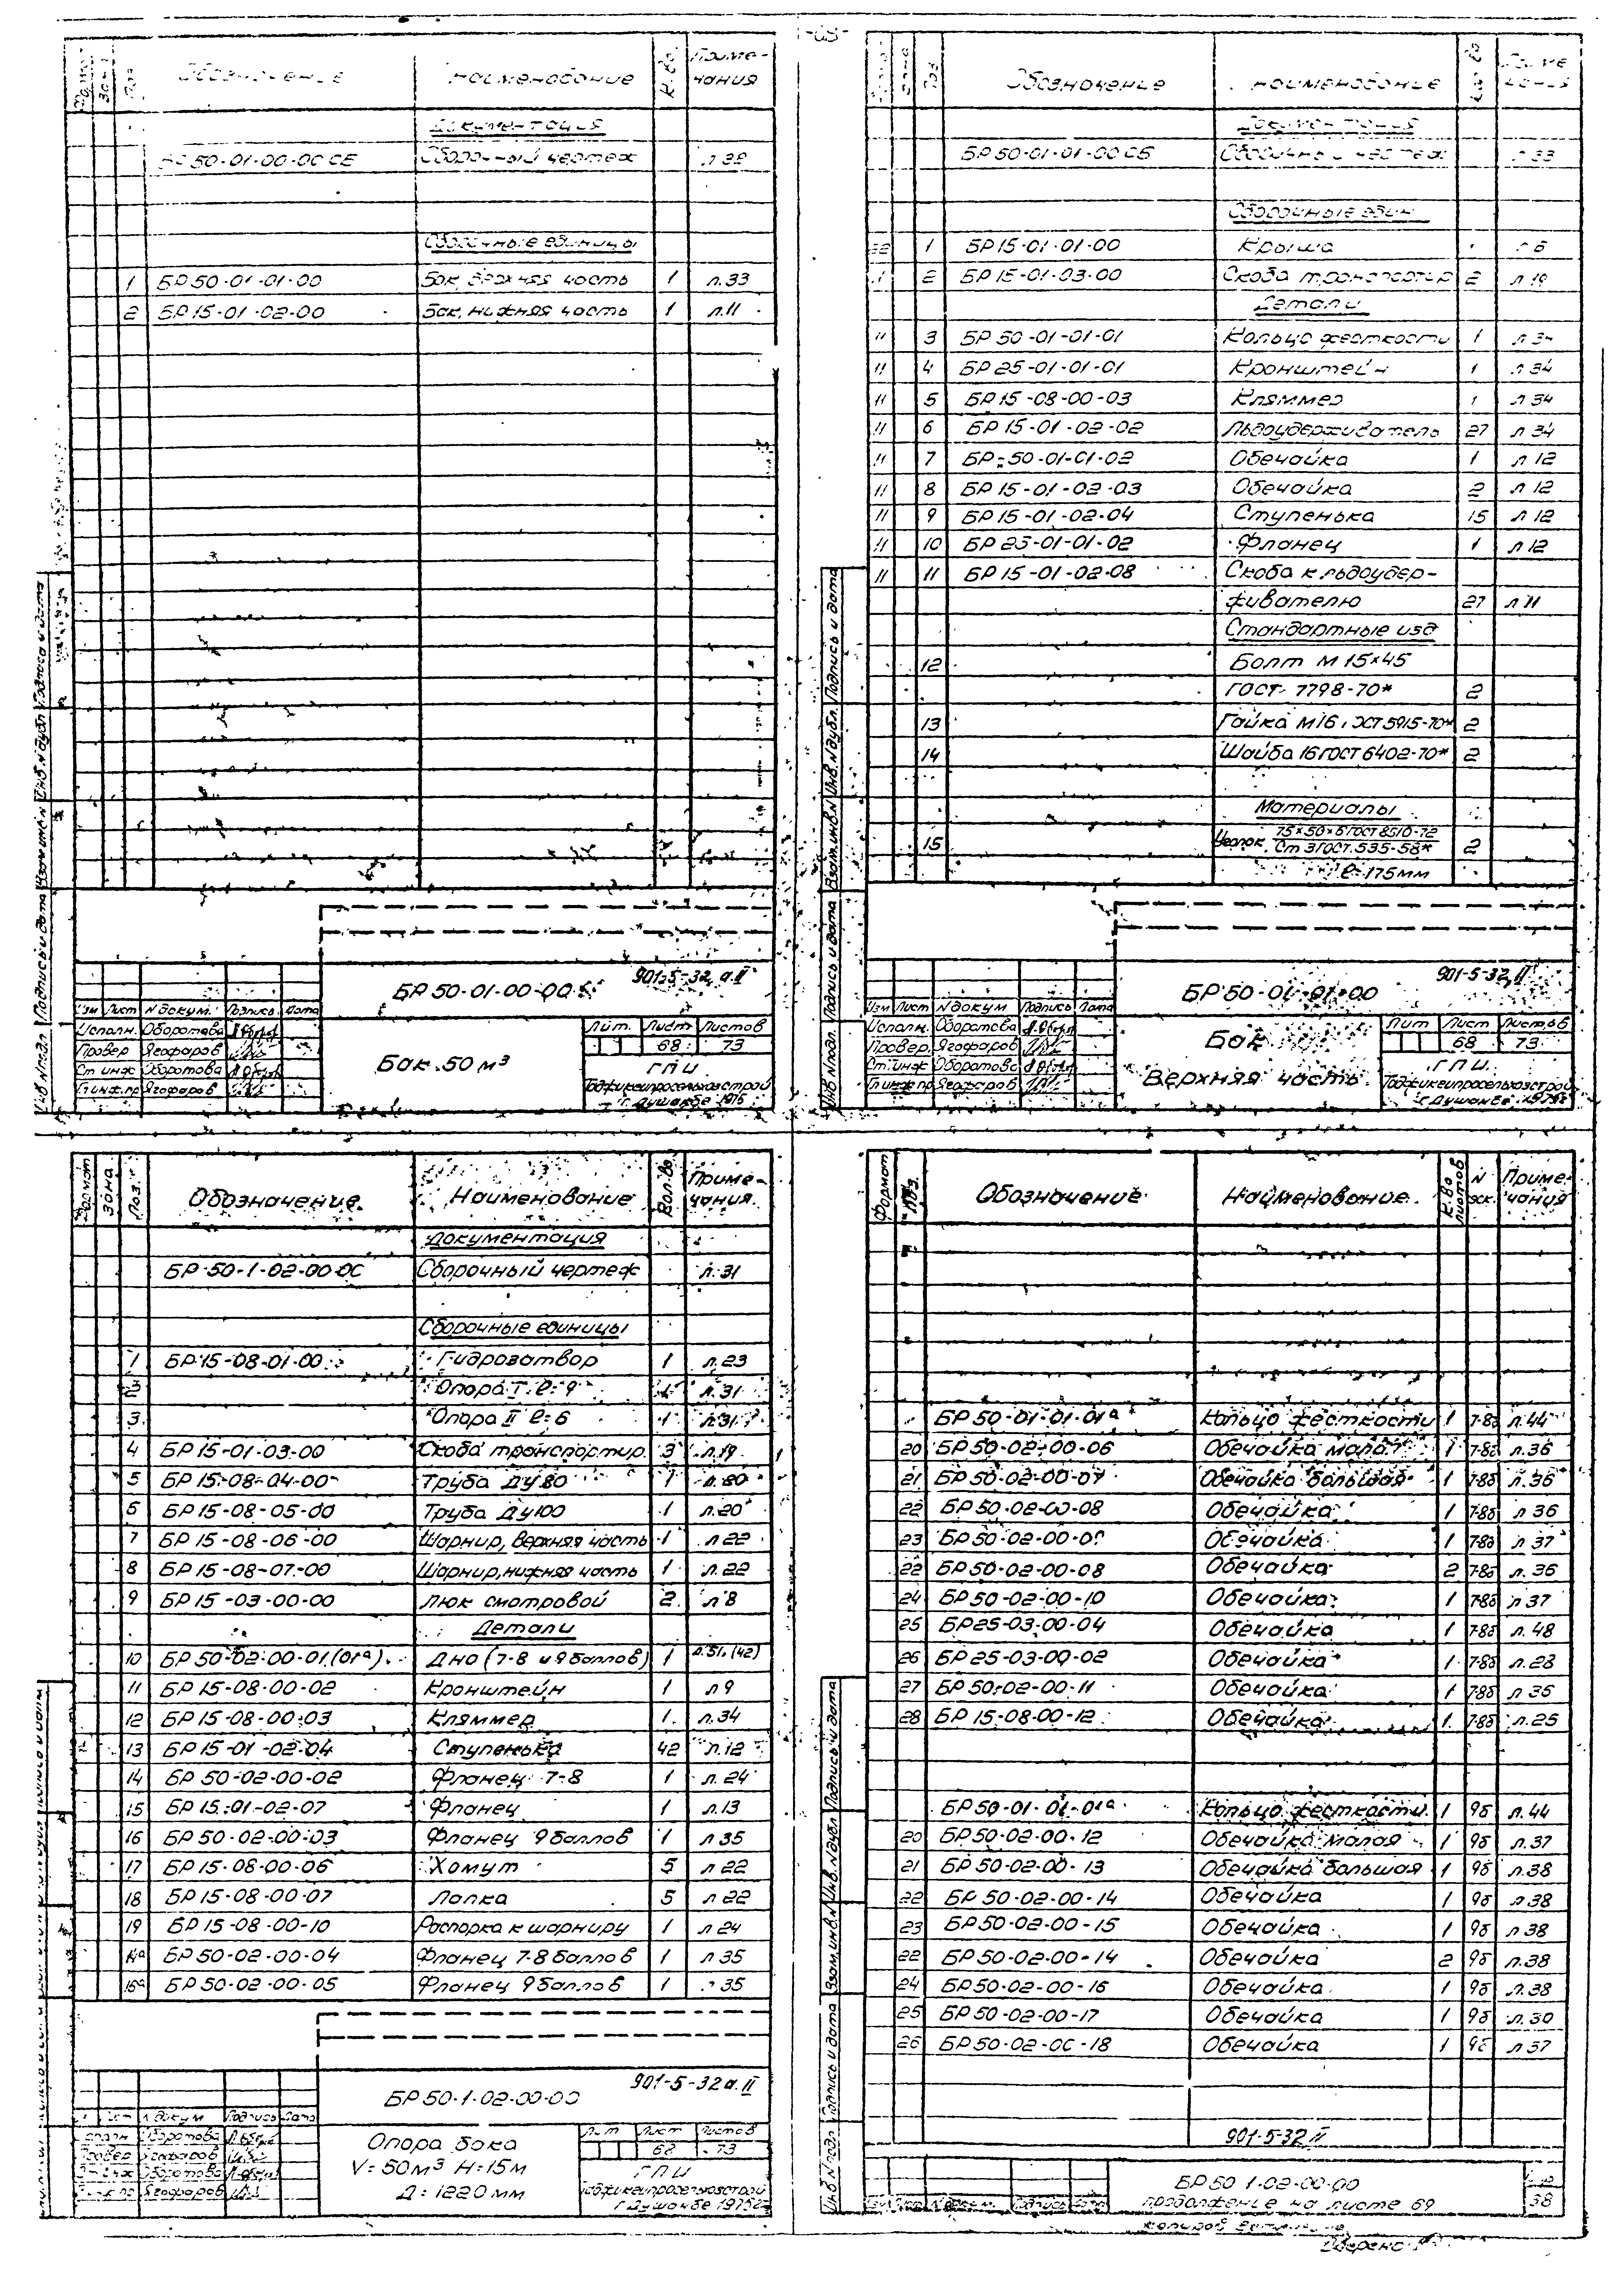 Обозначение Наименование Кол-во Примечания
Документация
50-01-00-00 СБ Сборочный чертеж
Сборочные единицы
1 БР 50-01-01-00 Бак, верхняя часть 1 л.33
2 БР 15-01-02-00 Бак, нижняя часть 1 л.11
901-5-32, а.II
БР 50-01-00-00
Изм Лист N докум. Подпись Дата
Исполн. Оборотова
Провер Ягофаров
Ст инж Оборотова
Гл инж.пр Ягофаров
Бак 50 м³
Лит. Лист Листов
68 73
ГПИ
Таджикгипросельхозстрой
г. Душанбе
Обозначение Наименование
Документация
БР 50-01-01-00 СБ Сборочный чертеж л 33
Сборочные един.
1 БР 15-01-01-00 Крыша л 6
2 БР 15-01-03-00 Скоба транспортир 2 л 19
Детали
11 3 БР 50-01-01-01 Кольцо жесткости 1 л 34
11 4 БР 25-01-01-01 Кронштейн 1 л 34
11 5 БР 15-08-00-03 Кляммер 1 л 34
11 6 БР 15-01-02-02 Льдоудерживатель 27 л 34
11 7 БР 50-01-01-02 Обечайка 1 л 12
11 8 БР 15-01-02-03 Обечайка 2 л 12
11 9 БР 15-01-02-04 Ступенька 15 л 12
11 10 БР 25-01-01-02 Фланец 1 л 12
11 11 БР 15-01-02-08 Скоба к льдоудер-
живателю 27 л 11
Стандартные изд
12 Болт М 15×45
ГОСТ 7798-70* 2
13 Гайка М16 ГОСТ 5915-70* 2
14 Шайба 16 ГОСТ 6402-70* 2
Материалы
15 Уголок 75×50×6 ГОСТ 8510-72
Ст 3 ГОСТ 535-58* 2
ℓ=175мм
901-5-32, II
БР 50-01-01-00
Изм Лист N докум Подпись Дата
Исполн. Оборотова
Провер. Ягофаров
Ст. инж. Оборотова
Гл инж.пр Ягофаров
Бак
Верхняя часть
Лит Лист Листов
68 73
ГПИ
Таджикгипросельхозстрой
г. Душанбе
Формат Зона Поз. Обозначение Наименование Кол-во Приме-чания
Документация
БР 50-1-02-00-0С Сборочный чертеж л.31
Сборочные единицы
1 БР 15-08-01-00 Гидрозатвор 1 л.23
2 Опора I ℓ=9 1 л.31
3 Опора II ℓ=6 1 л.31
4 БР 15-01-03-00 Скоба транспортир. 3 л.19
5 БР 15-08-04-00 Труба ДУ 80 1 л.20
6 БР 15-08-05-00 Труба ДУ100 1 л.20
7 БР 15-08-06-00 Шарнир, верхняя часть 1 л 22
8 БР 15-08-07-00 Шарнир, нижняя часть 1 л.22
9 БР 15-03-00-00 Люк смотровой 2 л 8
Детали
10 БР 50-02-00-01 (01ª) Дно (7-8 и 9 баллов) 1 л.51. (42)
11 БР 15-08-00-02 Кронштейн 1 л 9
12 БР 15-08-00-03 Кляммер 1 л.34
13 БР 15-01-02-04 Ступенька 42 л.12
14 БР 50-02-00-02 Фланец 7-8 1 л.24
15 БР 15-01-02-07 Фланец 1 л.13
16 БР 50-02-00-03 Фланец 9 баллов 1 л 35
17 БР 15-08-00-06 Хомут 5 л 22
18 БР 15-08-00-07 Лапка 5 л 22
19 БР 15-08-00-10 Распорка к шарниру 1 л 24
14ª БР 50-02-00-04 Фланец 7-8 баллов 1 л 35
16ª БР 50-02-00-05 Фланец 9 баллов 1 35
901-5-32 а.II
БР 50-1-02-00-00
Оборотова
Ягофаров
Оборотова
Ягофаров
Опора бака
V=50м³ H=15м
Д=1220 мм
Лит Лист Листов
68 73
ГПИ
Таджикгипросельхозстрой
г Душанбе 1975г
Формат Поз. Обозначение Наименование К-во листов N эск. Приме-чания
БР 50-01-01-01ª Кольцо жесткости 1 7-8б л.44
20 БР 50-02-00-06 Обечайка малая 1 7-8б л.36
21 БР 50-02-00-07 Обечайка большая 1 7-8б л.36
22 БР 50-02-00-08 Обечайка 1 7-8б л 36
23 БР 50-02-00-09 Обечайка 1 7-8б л 37
22 БР 50-02-00-08 Обечайка 2 7-8б л.36
24 БР 50-02-00-10 Обечайка 1 7-8б л 37
25 БР 25-03-00-04 Обечайка 1 7-8б л.48
26 БР 25-03-00-02 Обечайка 1 7-8б л.28
27 БР 50-02-00-11 Обечайка 1 7-8б л 35
28 БР 15-08-00-12 Обечайка 1 7-8б л.25
БР 50-01-01-01ª Кольцо жесткости 1 9б л.44
20 БР 50-02-00-12 Обечайка малая 1 9б л.37
21 БР 50-02-00-13 Обечайка большая 1 9б л.38
22 БР 50-02-00-14 Обечайка 1 9б л 38
23 БР 50-02-00-15 Обечайка 1 9б л.38
22 БР 50-02-00-14 Обечайка 2 9б л.38
24 БР 50-02-00-16 Обечайка 1 9б л.38
25 БР 50-02-00-17 Обечайка 1 9б л.30
26 БР 50-02-00-18 Обечайка 1 9б л 37
901-5-32 II
БР 50 1-02-00-00
продолжение на листе 69
38